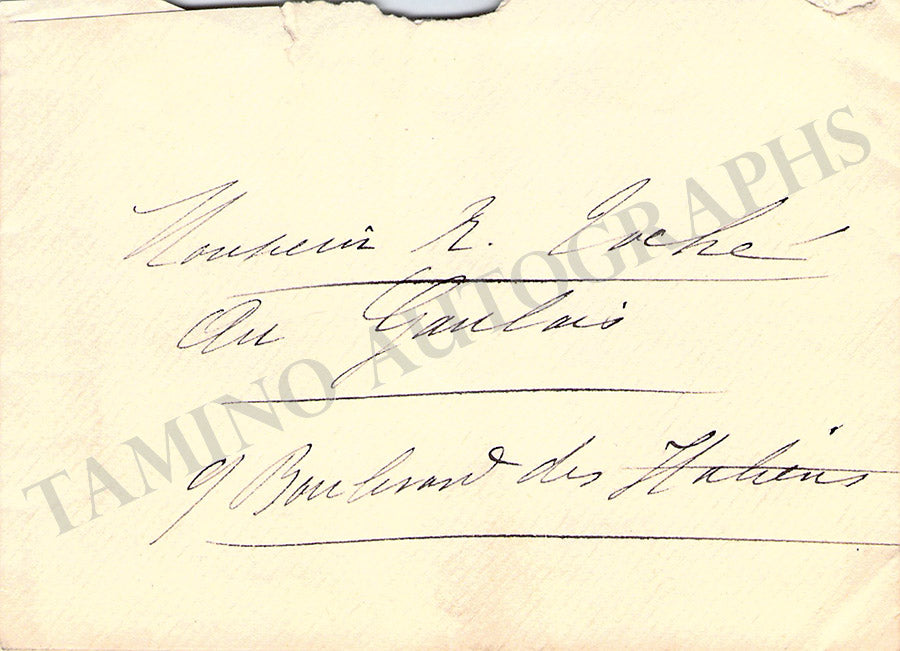 Monsieur R. Toché
Au Gaulois
9 Boulevard des Italiens
TAMINO AUTOGRAPHS